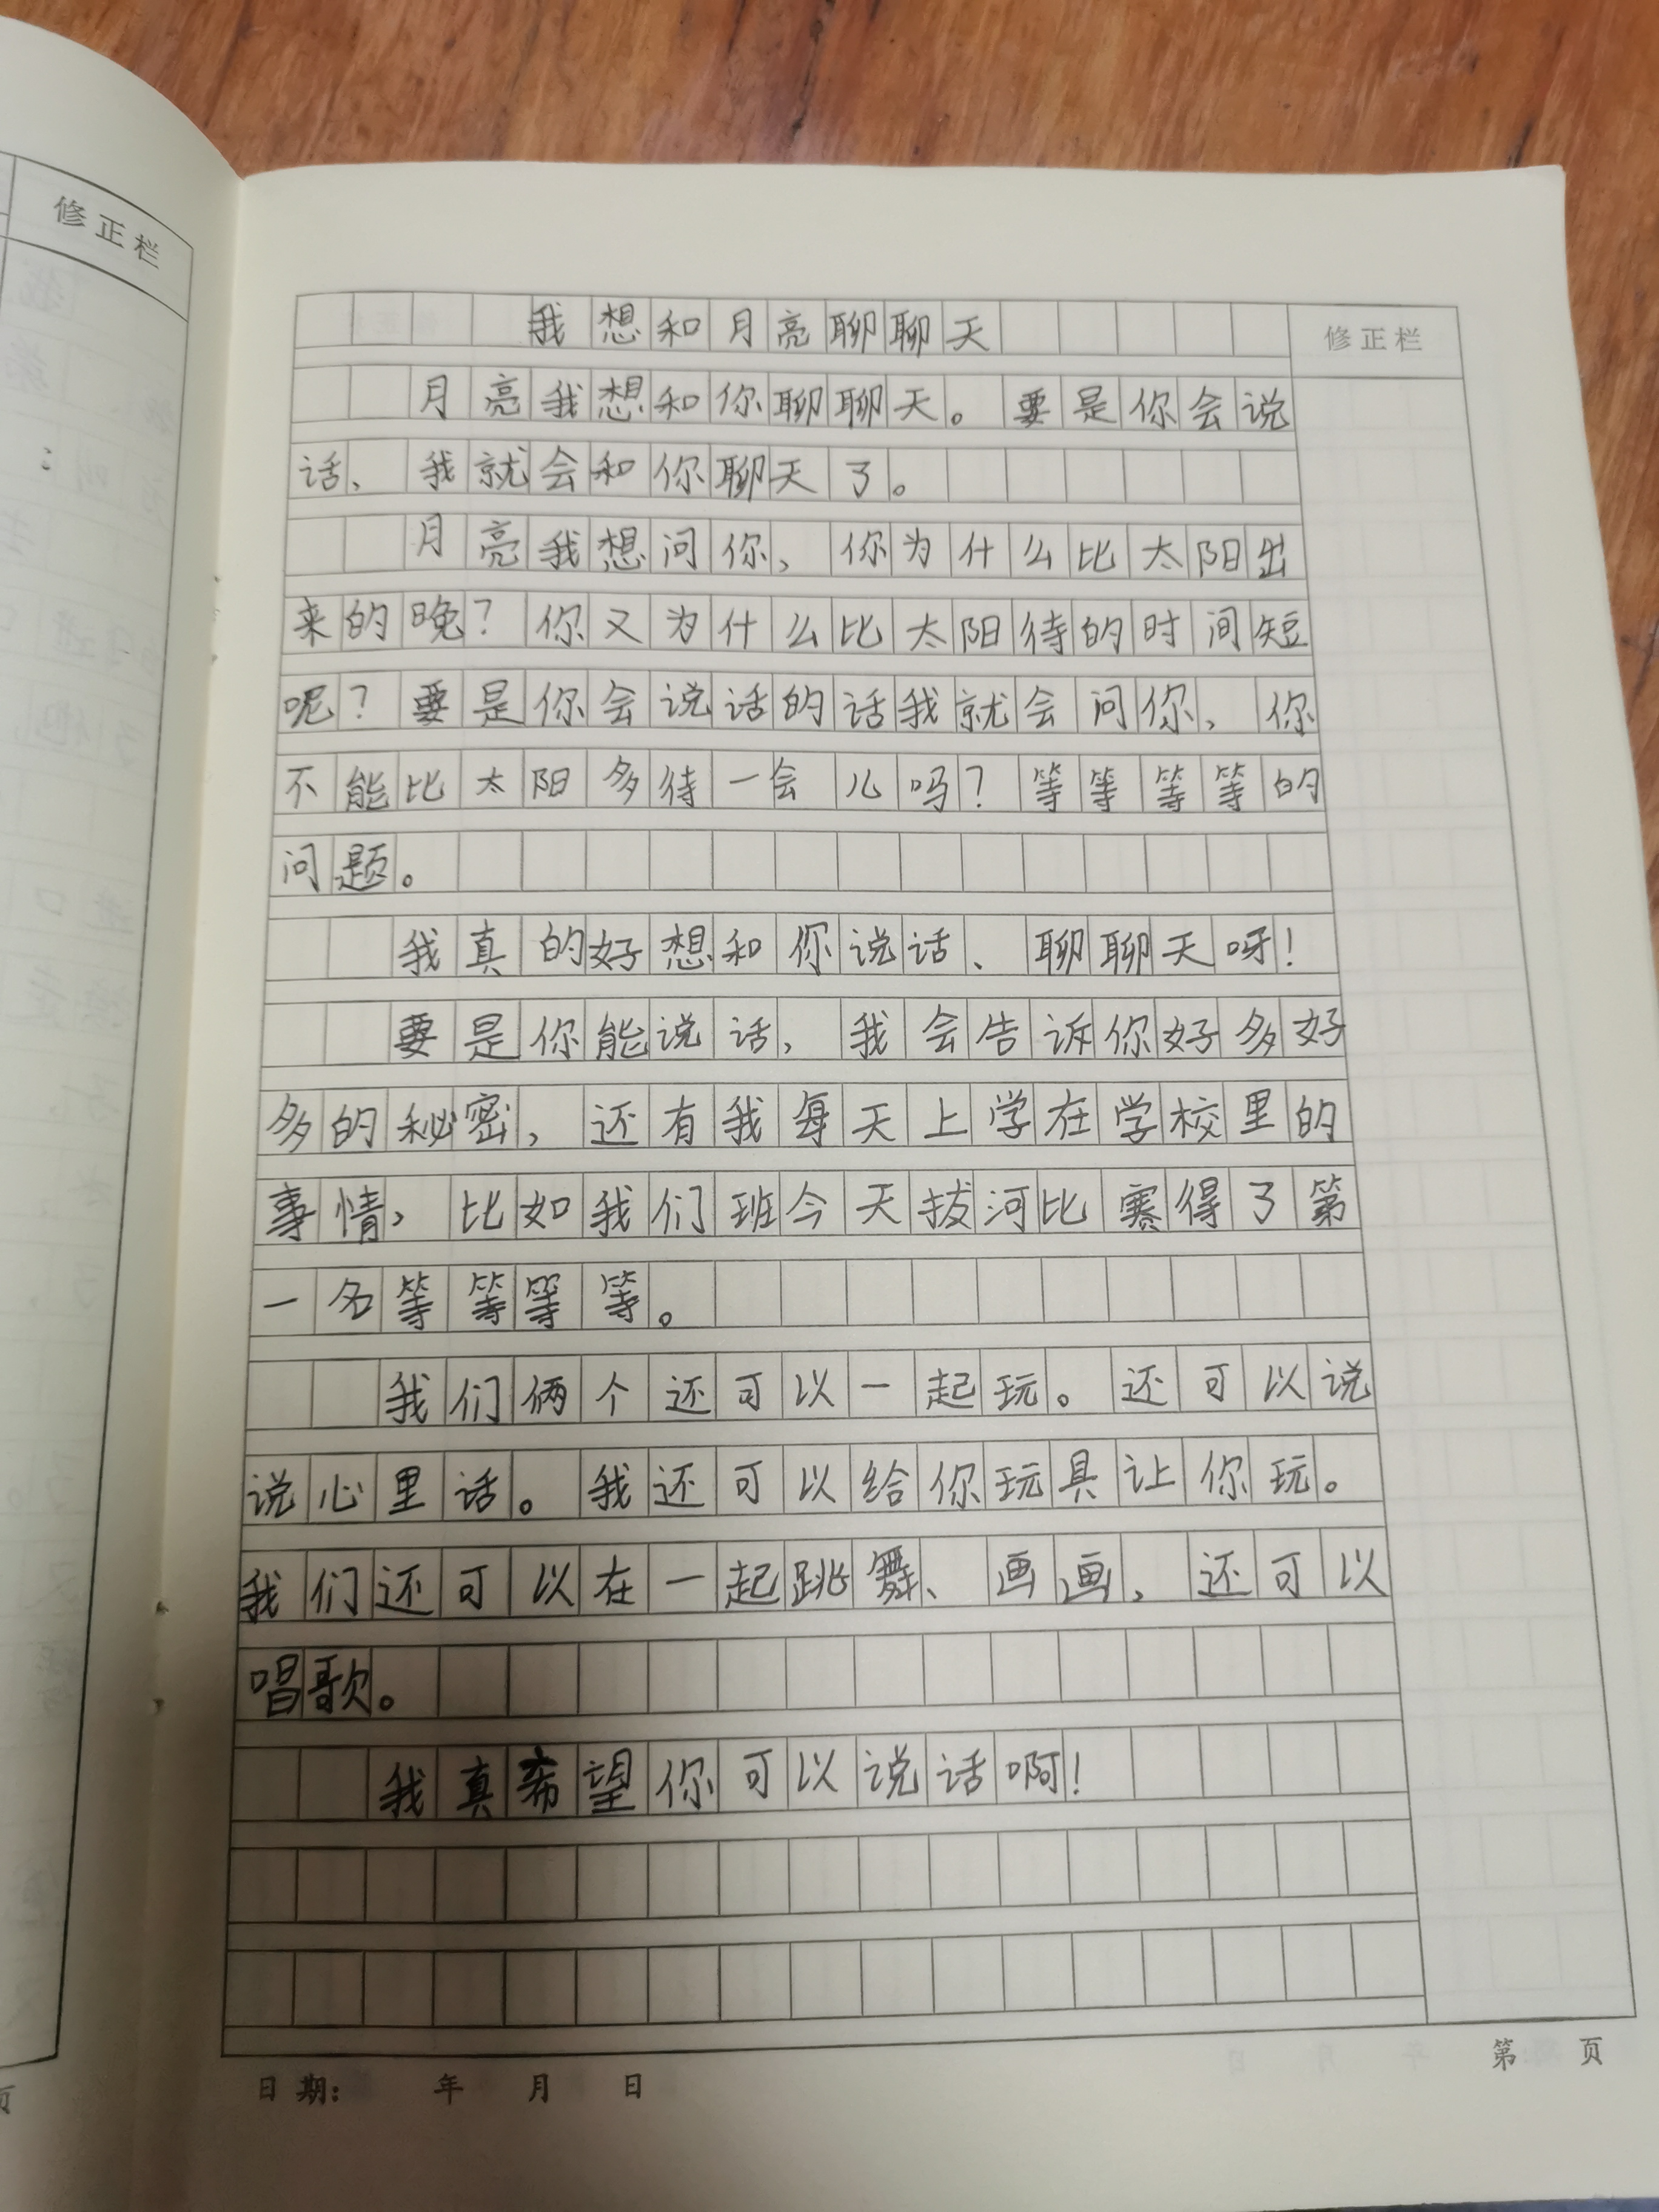 修正栏
我想和月亮聊聊天
修正栏
月亮我想和你聊聊天。要是你会说
话、我就会和你聊天了。
月亮我想问你、你为什么比太阳出
来的晚？你又为什么比太阳待的时间短
呢？要是你会说话的话我就会问你、你
不能比太阳多待一会儿吗？等等等等的
问题。
我真的好想和你说话、聊聊天呀！
要是你能说话，我会告诉你好多好
多的秘密，还有我每天上学在学校里的
事情，比如我们班今天拔河比赛得了第
一名等等等等。
我们俩个还可以一起玩。还可以说
说心里话。我还可以给你玩具让你玩。
我们还可以在一起跳舞、画画，还可以
唱歌。
我真希望你可以说话啊！
日期： 年 月 日
第 页
页